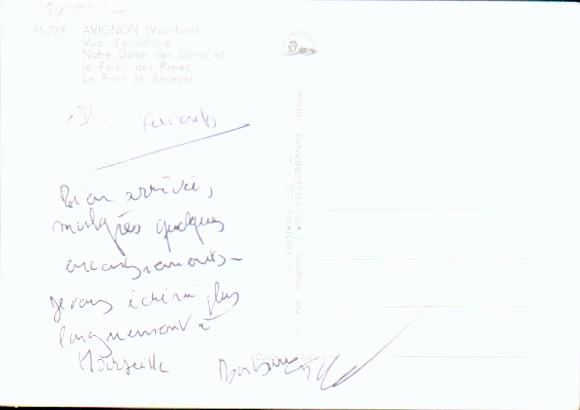 95.279 - AVIGNON (Vaucluse)
Vue d'ensemble
Notre Dame des Doms et
le Palais des Papes
Le Pont St Bénezet
Bien arrivée,
malgrès quelques
Je vous écrirai plus
longuement à
Marseille
EDITIONS S.L.
rue Magenta, LYON-VILLEURBANNE (Rhône)